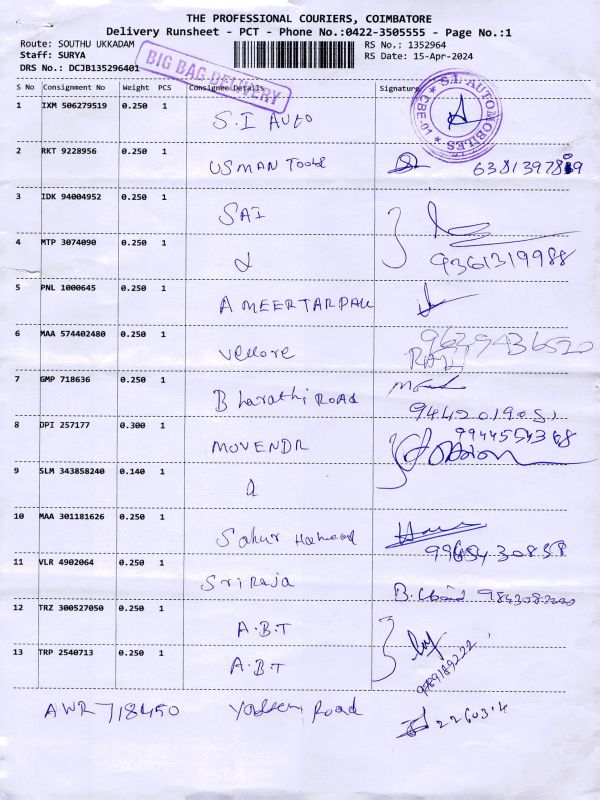 THE PROFESSIONAL COURIERS, COIMBATORE
Delivery Runsheet - PCT - Phone No.:0422-3505555 - Page No.:1
Route: SOUTHU UKKADAM RS No.: 1352964
Staff: SURYA RS Date: 15-Apr-2024
DRS No.: DCJB135296401
BIG BAG DELIVERY
S No Consignment No Weight PCS Consignee Details Signature
S.I. AUTOMOBILES CBE-01
1 IXM 506279519 0.250 1 S.I AUTO
2 RKT 9228956 0.250 1 USMAN Tools
3 IDK 94004952 0.250 1 SAI
4 MTP 3074090 0.250 1 9361319988
5 PNL 1000645 0.250 1
6 MAA 574402480 0.250 1 vellore 9629436520
RAVI
7 GMP 718636 0.250 1 Bharathi ROAD
8 DPI 257177 0.300 1 MOVENDR 9944554368
9 SLM 343858240 0.140 1
10 MAA 301181626 0.250 1
11 VLR 4902064 0.250 1 Sri Raja
12 TRZ 300527050 0.250 1 A.B.T
13 TRP 2540713 0.250 1 A.B.T
AWR 718450 Road